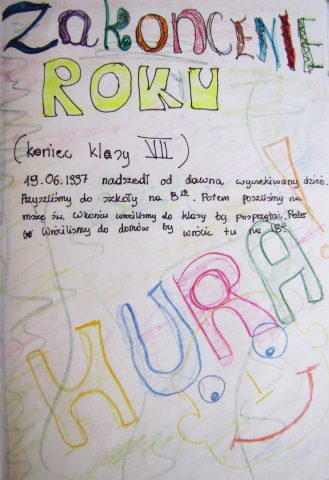 ZAKOŃCENIE
ROKU
(koniec klasy VII)
19.06.1997 nadszedł od dawna wyczekiwany dzień.
Przyszliśmy do szkoły na 8¹⁰. Potem poszliśmy na
mszę św. W końcu wróciliśmy do klasy by posprzątać. Potem
wróciliśmy do domów by wrócić tu na
HURA!